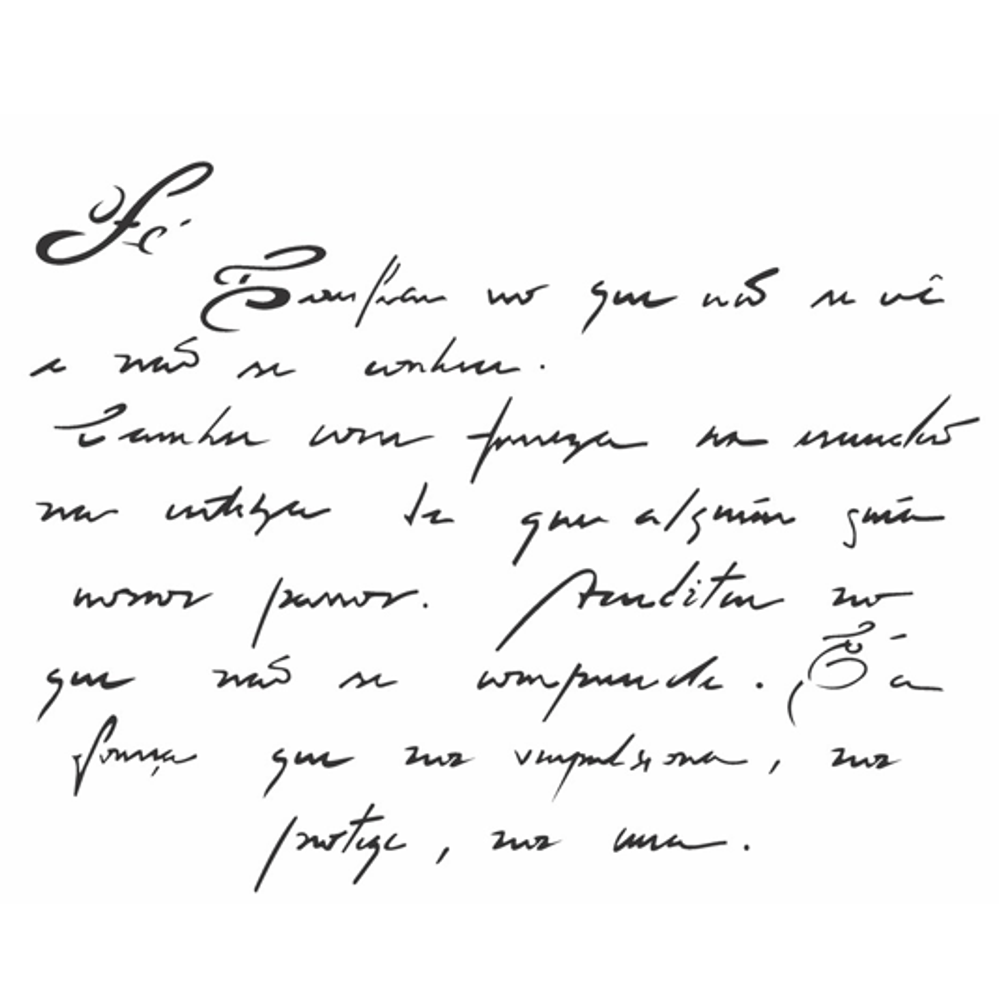 Fé
Confiar no que não se vê
e não se conhece.
Caminhar com firmeza no mundo
na certeza de que alguém guia
nossos passos. Acreditar no
que não se compreende. É a
força que nos impulsiona, nos
protege, nos una.